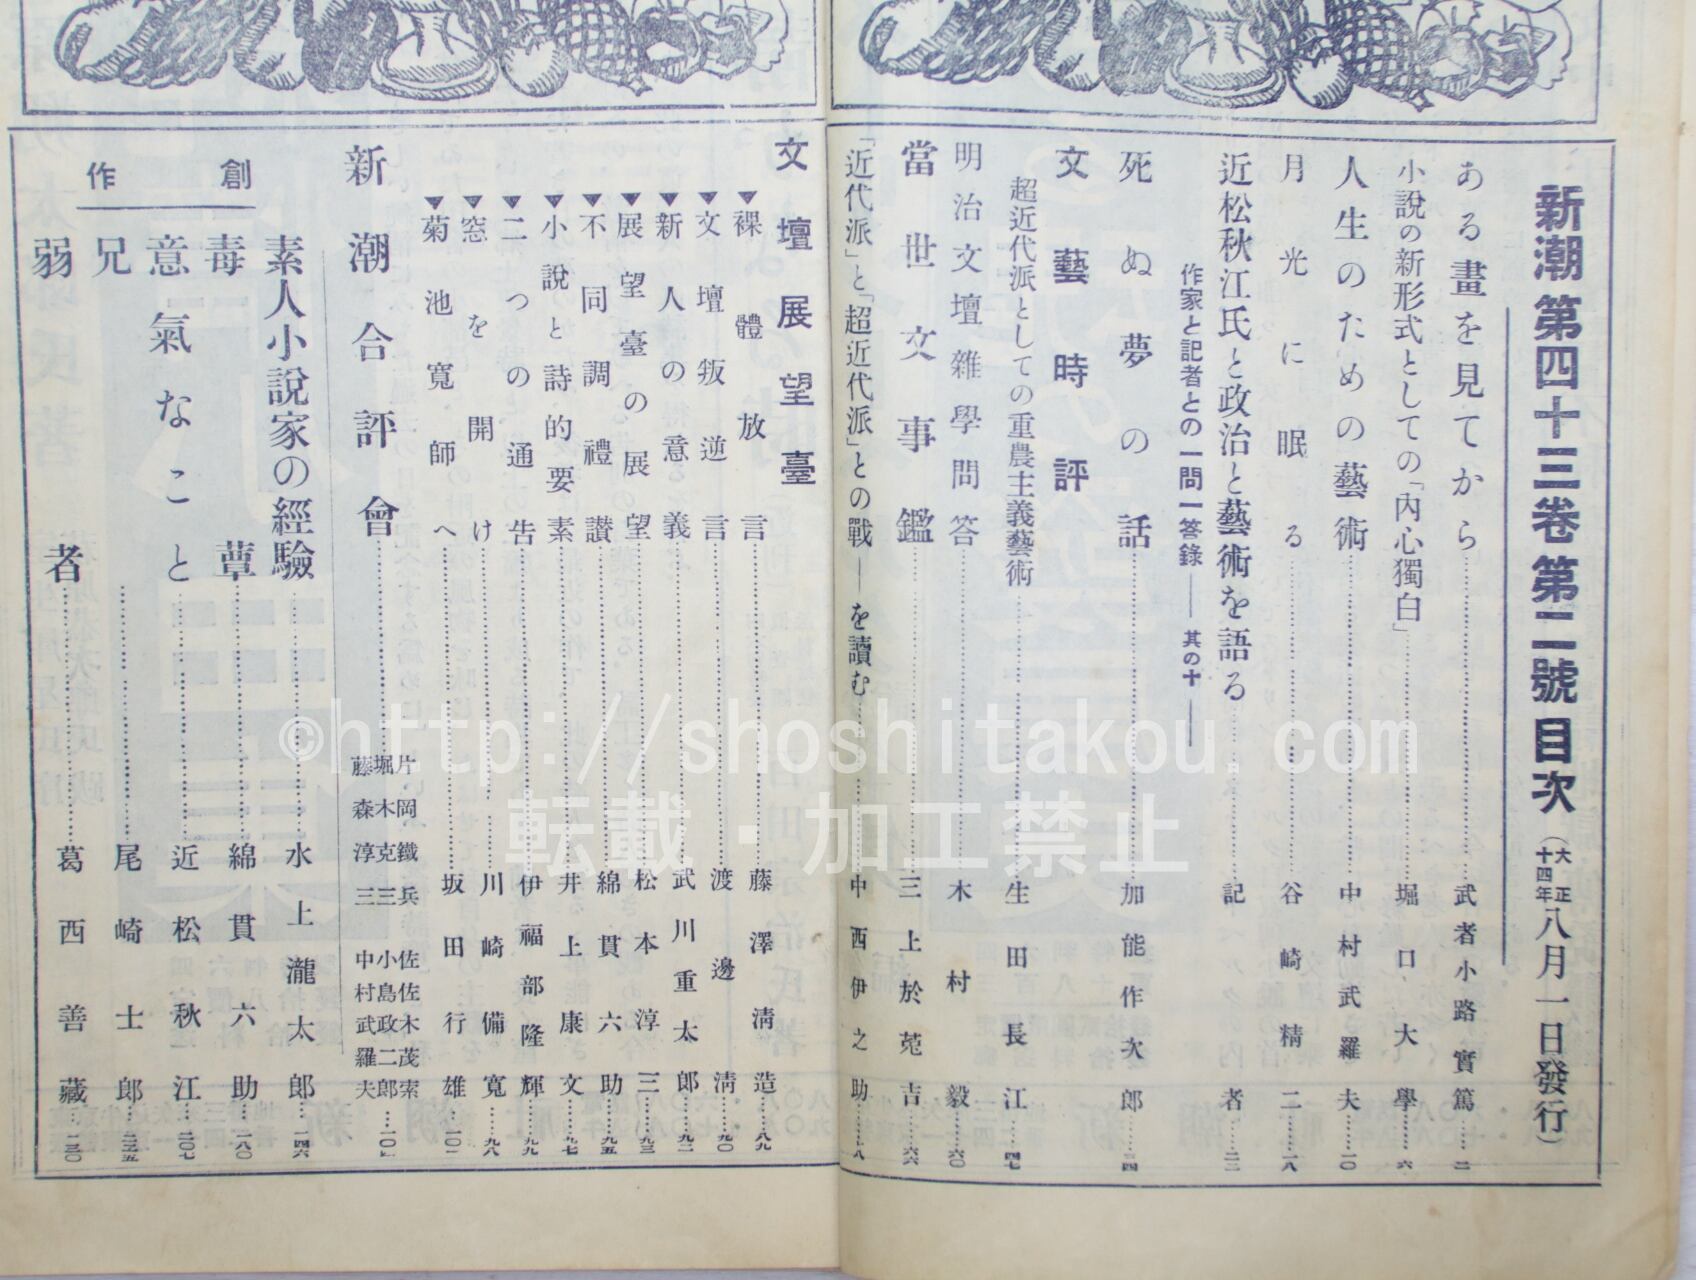 新潮 第四十三卷 第二號 目次 (大正十四年八月一日發行)
ある畫を見てから……武者小路實篤…二
小說の新形式としての「內心獨白」……堀口大學…六
人生のための藝術……中村武羅夫…一〇
月光に眠る……谷崎精二…一八
近松秋江氏と政治と藝術を語る……記者…二三
作家と記者との一問一答錄——其の十——
死ぬ夢の話……加能作次郎…三四
文藝時評
超近代派としての重農主義藝術……生田長江…四七
明治文壇雜學問答……木村毅…六〇
當世文事鑑……三上於菟吉…六六
「近代派」と「超近代派」との戰—を讀む……中西伊之助…
文壇展望臺
▼裸體放言……藤澤清造…八九
▼文壇叛逆言……渡邊清…九〇
▼新人の意義……武川重太郎…九二
▼展望臺の展望……松本淳三…九三
▼不同調禮讃……綿貫六助…九五
▼小說と詩的要素……井上康文…九七
▼二つの通告……伊福部隆輝…九九
▼窓を開け……川崎備寬…九八
▼菊池寬師へ……坂田行雄…一〇二
新潮合評會……片岡鐵兵 佐佐木茂索 堀木克三 小島政二郎 藤森淳三 中村武羅夫
創作
素人小說家の經驗……水上瀧太郎…一四六
毒蕈……綿貫六助…一八〇
意氣なこと……近松秋江…二〇七
兄……尾崎士郎…二二五
弱者……葛西善藏…二三〇
©http://shoshitakou.com
転載・加工禁止